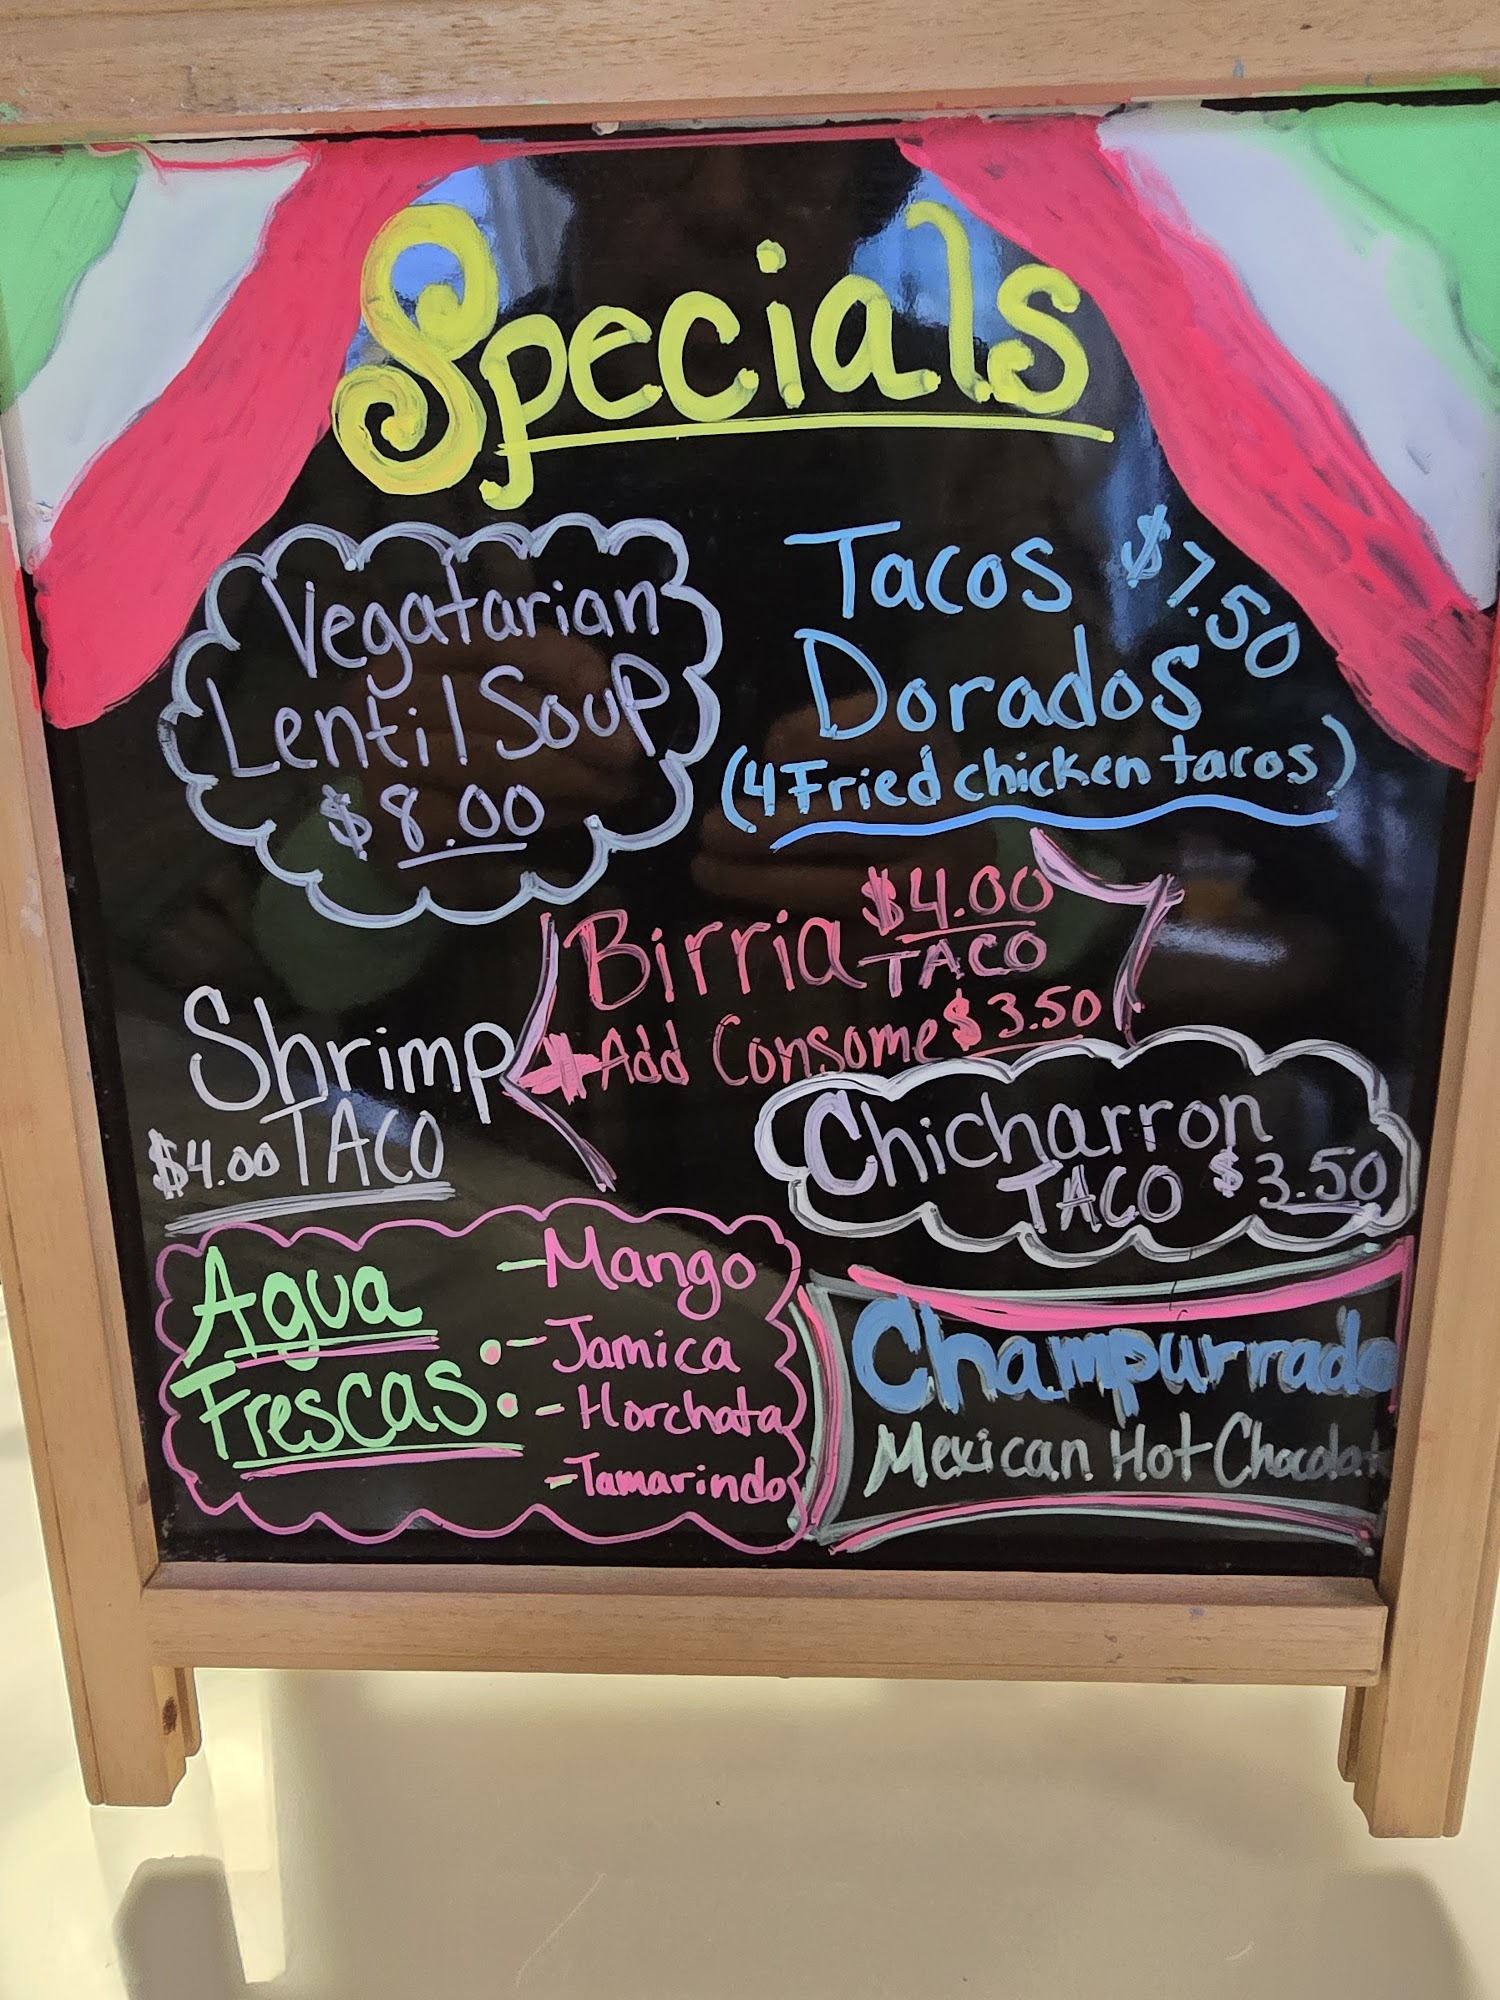 Specials
Vegatarian
Lentil Soup
$8.00
Tacos $7.50
Dorados
(4 Fried chicken tacos)
Birria $4.00
TACO
+Add Consome $3.50
Shrimp
$4.00 TACO
Chicharron
TACO $3.50
Agua
Frescas:
-Mango
-Jamica
-Horchata
-Tamarindo
Champurrado
Mexican Hot Chocolat